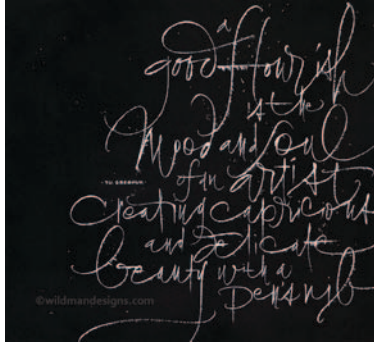 a
good flourish
is the
Mood and Soul
of an artist
Creating capricious
and delicate
beauty with a
pen's nib
©wildmandesigns.com